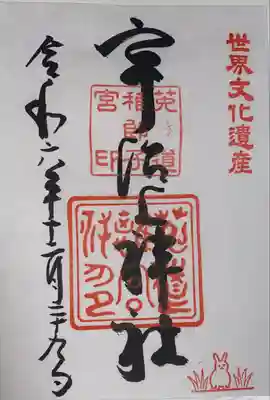 世界文化遺産
宇治上神社
菟道
稚郎子
宮印
令和六年十二月二十九日